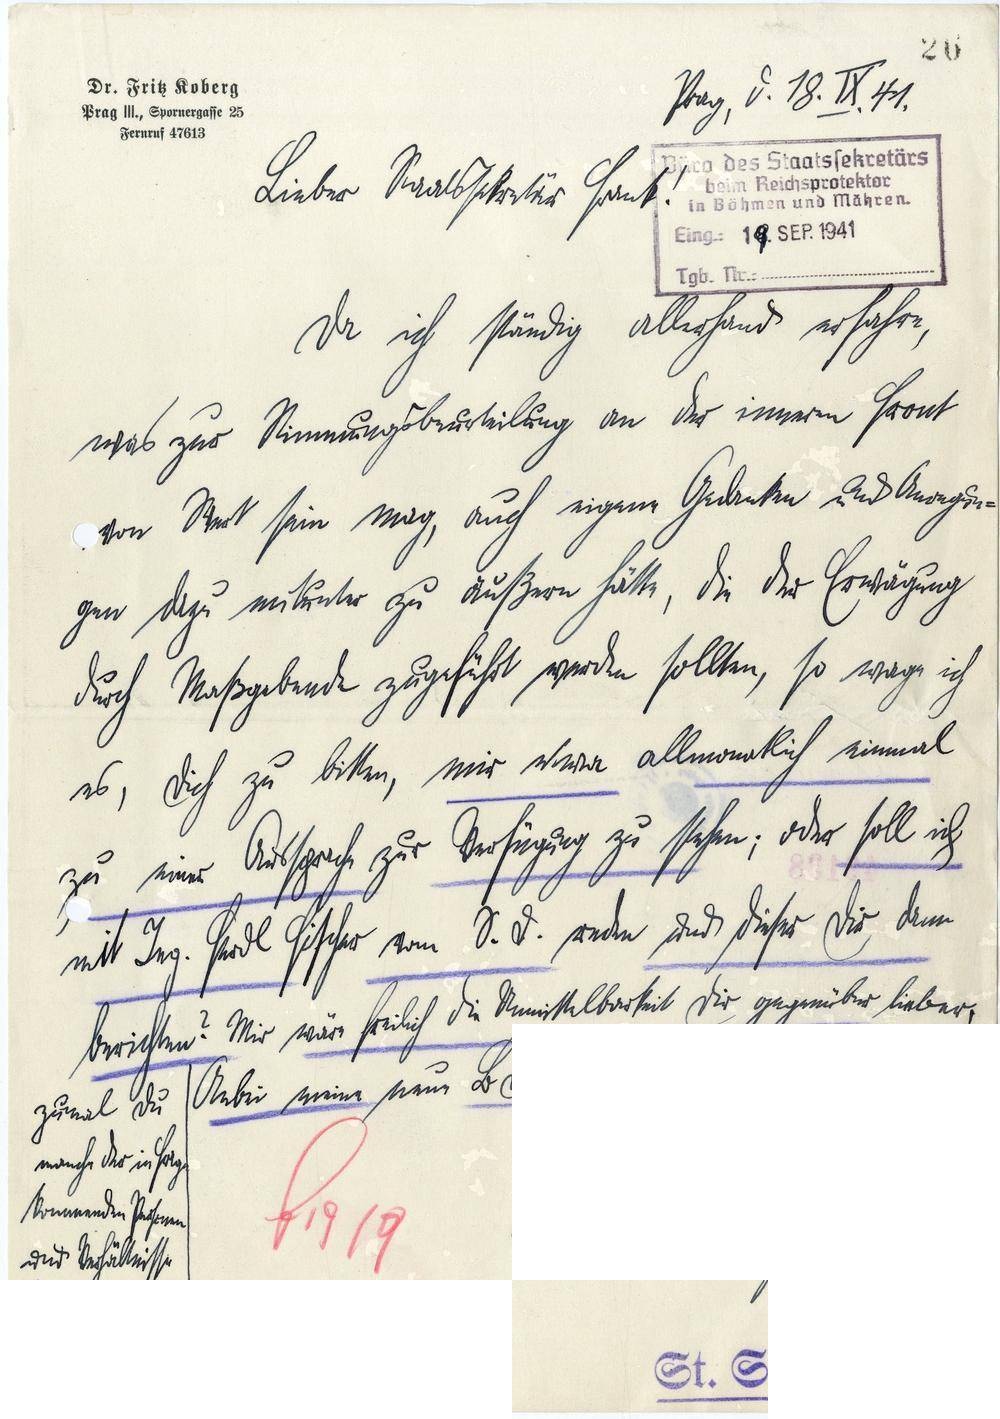 26
Dr. Fritz Koberg
Prag III., Spornergasse 25
Fernruf 47613
Prag, d. 18. IX. 41.
Lieber Staatssekretär Frank!
Büro des Staatssekretärs
beim Reichsprotektor
in Böhmen und Mähren.
Eing.: 19. SEP. 1941
Tgb. Nr.:
Da ich ständig allerhand erfahre,
was zur Stimmungsbeurteilung an der inneren Front
von Wert sein mag, auch eigene Gedanken und Anregun=
gen dazu mitunter zu äußern hätte, die der Erwägung
durch Maßgebende zugeführt werden sollten, so wage ich
es, Dich zu bitten, mir etwa allmonatlich einmal
zu einer Aussprache zur Verfügung zu stehen; oder soll ich
mit Ing. Ferdl Fischer vom S. D. reden und dieser Dir dann
berichten? Mir wäre freilich die Unmittelbarkeit Dir gegenüber lieber,
zumal Du
manche der in Frage
kommenden Personen
und Verhältnisse
Anbei meine neue
19/9
St. S